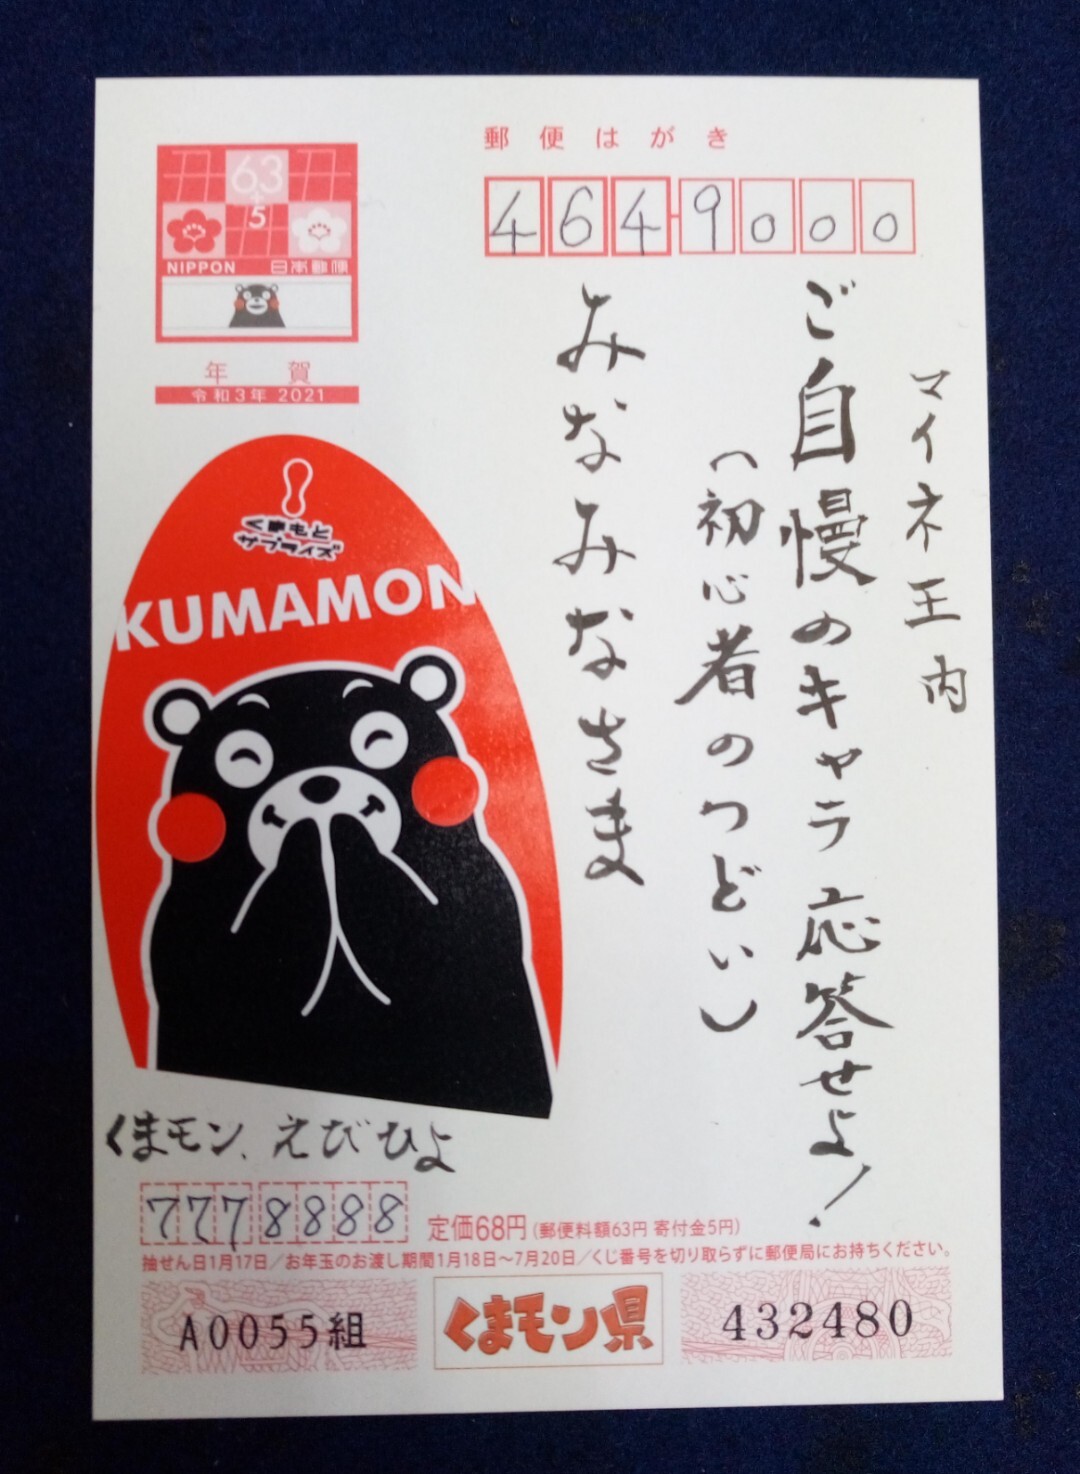 郵便はがき
63
+
5
NIPPON 日本郵便
年賀
令和3年 2021
4649000
マイネ王内
ご自慢のキャラ応答せよ!
(初心者のつどい)
みなみなさま
くまもと
サプライズ
KUMAMON
くまモン、えびひよ
7778888
定価68円(郵便料額63円 寄付金5円)
抽せん日1月17日/お年玉のお渡し期間1月18日~7月20日/くじ番号を切り取らずに郵便局にお持ちください。
A0055組
くまモン県
432480